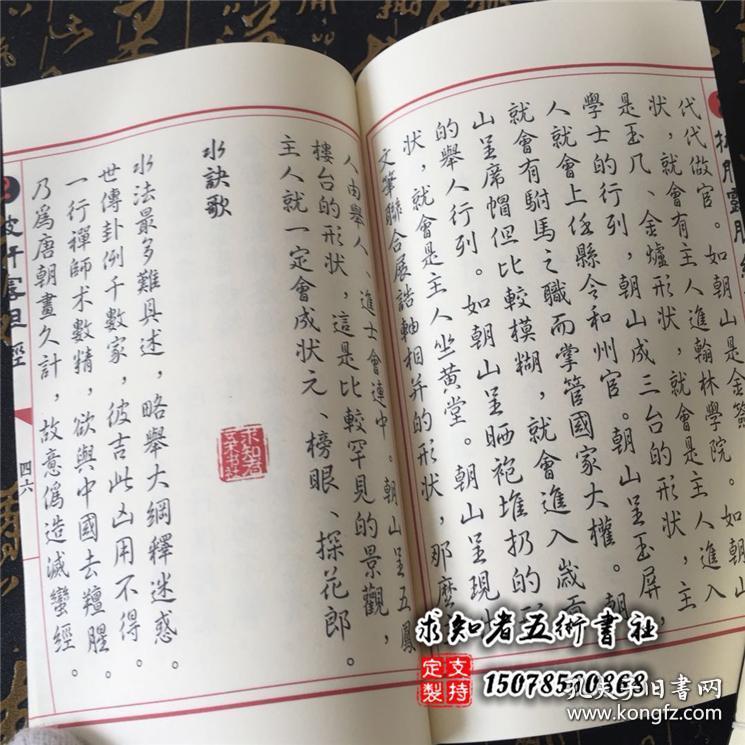 代代做官。如朝山是金
狀，就會有主人進翰林學院。如朝山
是玉几、金爐形狀，就會是主人進入
學士的行列，朝山成三台的形狀，主
人就會上任縣令和州官。朝山呈玉屏，
就會有駙馬之職而掌管國家大權。朝
山呈席帽但比較模糊，就會進入歲貢
的舉人行列。如朝山呈晒袍堆扔的形
狀，就會是主人坐黃堂。朝山呈現
文筆聯合展誥軸相并的形狀，那麼
人由舉人、進士會連中。朝山呈五鳳
樓台的形狀，這是比較罕見的景觀，
主人就一定會成狀元、榜眼、探花郎。
水訣歌
水法最多難具述，略舉大綱釋迷惑。
世傳卦例千數家，彼吉此凶用不得。
一行禪師术數精，欲與中國去羶腥。
乃爲唐朝畫久計，故意僞造滅蠻經。
四六
求知者
求知者五術書社
支持
定製
15078520868
孔夫子旧書网
www.kongfz.com